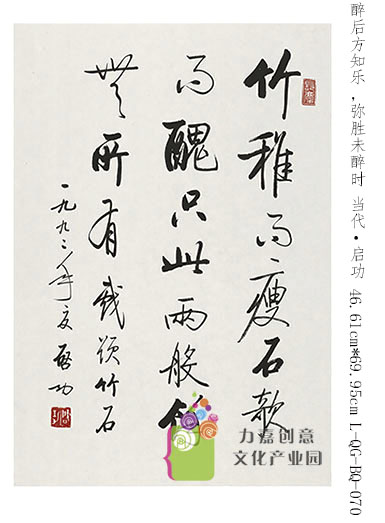 醉后方知乐 ,弥胜未醉时 当代·启功 46.61cm*69.95cm L-QG-BQ-070
竹稚而瘦石
而醜只此兩般
無所有戲題竹石
一九九二年夏 啟功
力嘉创意
文化产业园